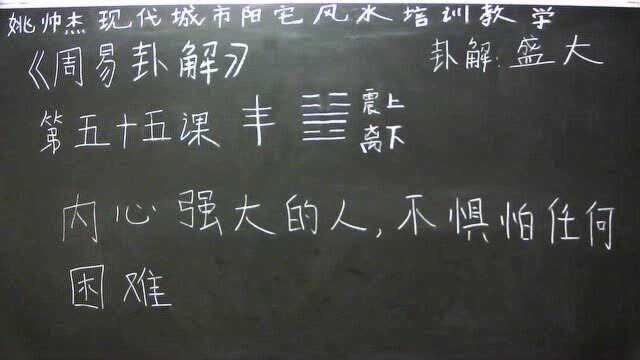 姚帅杰现代城市阳宅风水培训教学
《周易卦解》 卦解:盛大
第五十五课 丰 震上
离下
内心强大的人,不惧怕任何
困难